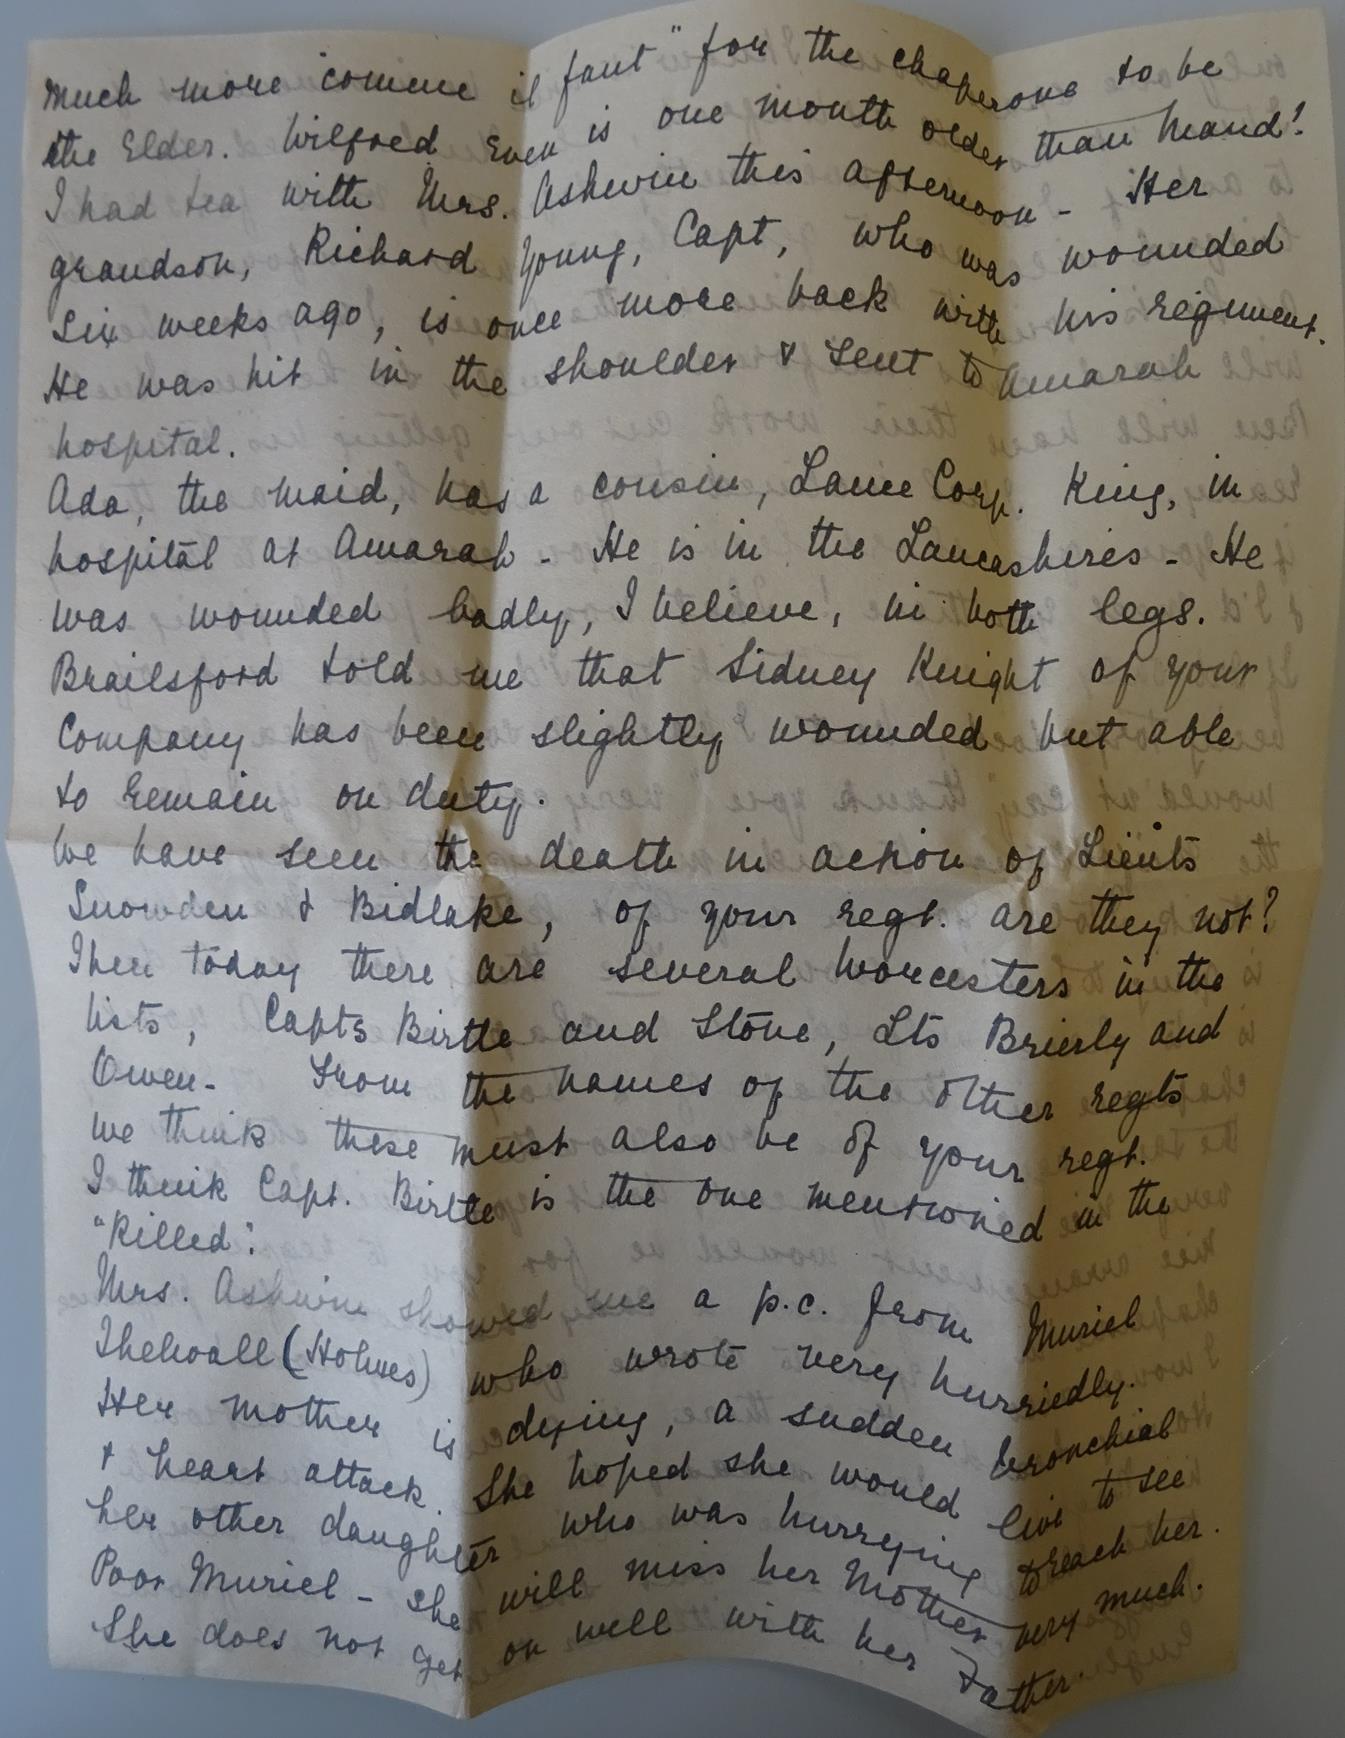 much more "comme il faut" for the chaperone to be
the Elder. Wilfred Even is one month older than Maud!
I had tea with Mrs. Ashwin this afternoon - Her
grandson, Richard Young, Capt, who was wounded
six weeks ago, is once more back with his regiment.
He was hit in the shoulder & sent to Amarah
hospital.
Ada, the maid, has a cousin, Lance Corp. King, in
hospital at Amarah - He is in the Lancashires - He
was wounded badly, I believe, in both legs.
Brailsford told me that Sidney Knight of your
Company has been slightly wounded but able
to remain on duty.
We have seen the death in action of Lieuts
Snowden & Bidlake, of your regt. are they not?
Then today there are several Worcesters in the
lists, Capts Birtle and Stone, Lts Brierly and
Owen - From the names of the other regts
we think these must also be of your regt.
I think Capt. Birtle is the one mentioned in the
"Killed".
Mrs. Ashwin showed me a p.c. from Muriel
Thelwall (Holmes) who wrote very hurriedly.
Her mother is dying, a sudden bronchial
& heart attack. She hoped she would live to see
her other daughter who was hurrying to reach her.
Poor Muriel - she will miss her Mother very much.
She does not get on well with her Father.